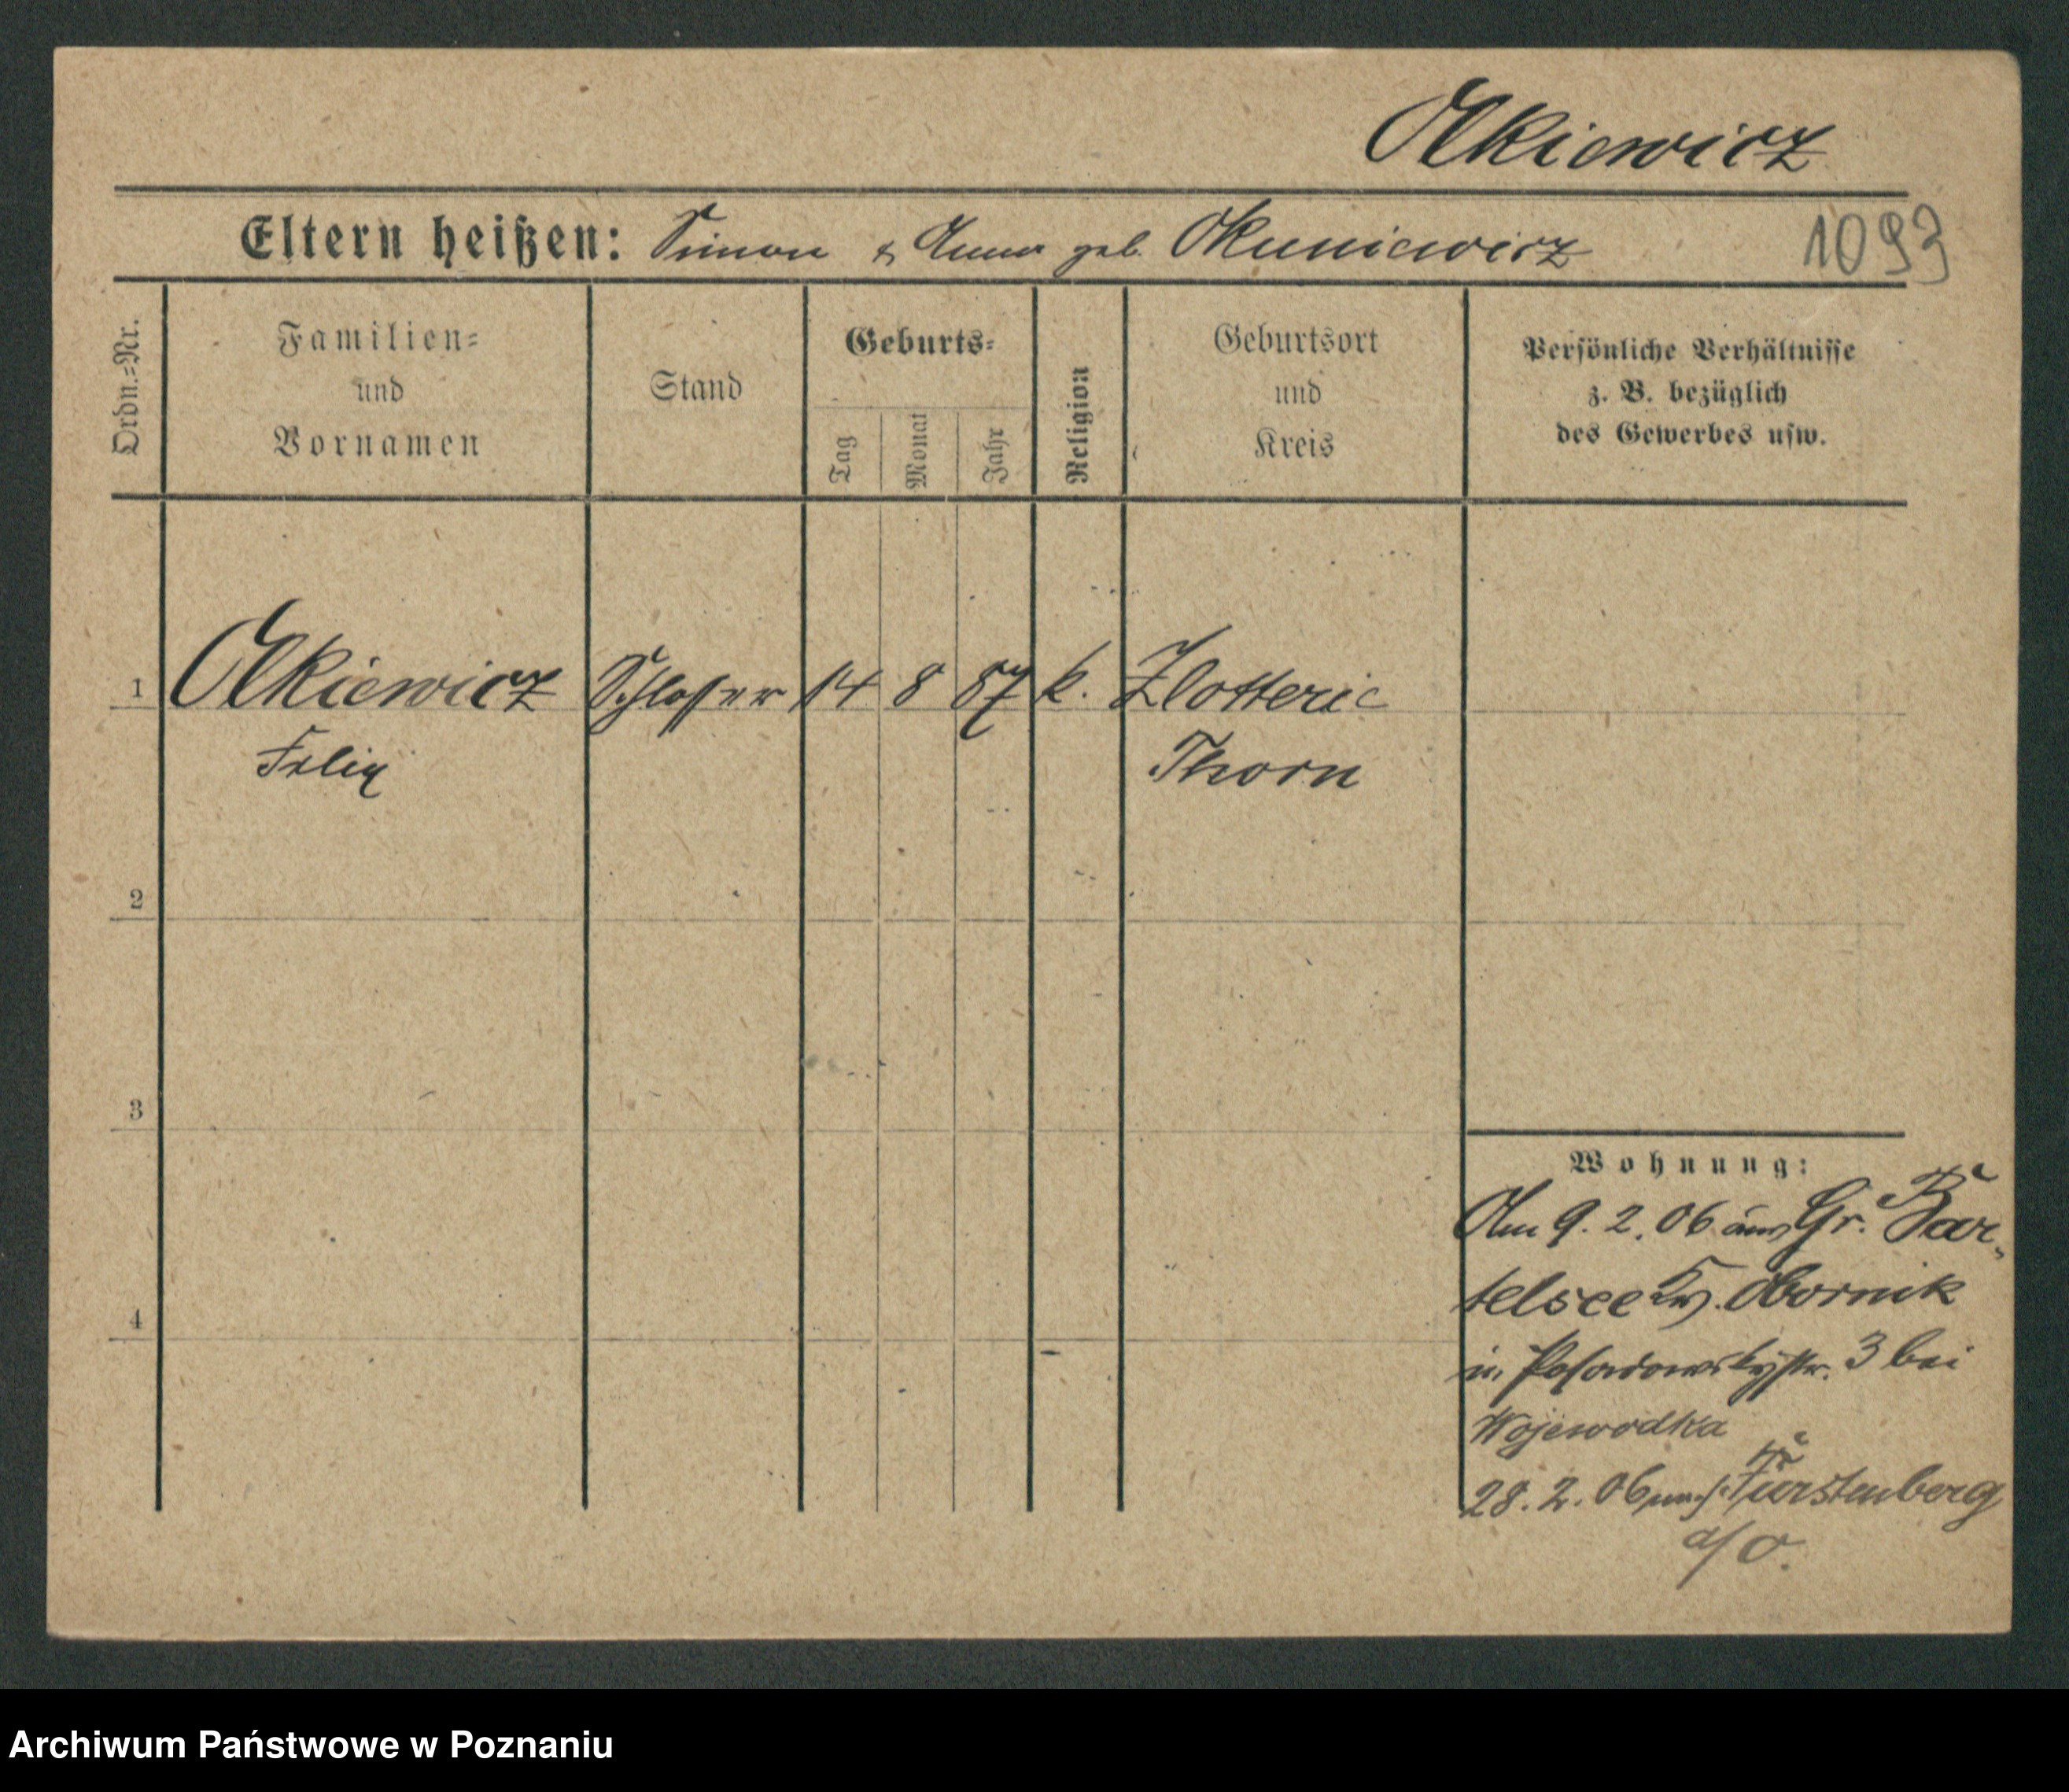 Olkiewicz
Eltern heißen: Simon & Anna geb. Okuniewicz
1093
Ordn.=Nr.
Familien=
und
Vornamen
Stand
Geburts=
Tag
Monat
Jahr
Religion
Geburtsort
und
Kreis
Persönliche Verhältnisse
z. B. bezüglich
des Gewerbes usw.
1 Olkiewicz Schlosser 14 8 87 k. Zlotterie
Felix Thorn
2
3
4
Wohnung:
Am 9. 2. 06 aus Gr. Bar-
telsee Kr. Obornik
n. Posadowskystr. 3 bei
Wojewodka
28. 2. 06 Fürstenberg
a/O.
Archiwum Państwowe w Poznaniu